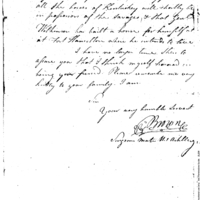 all the horse of Kentucky will shortly be
in possession of the savages, & that Genl
Wilkinson has built a house for himself
at Fort Hamilton where he intends to live
I have no longer time than to
assure you that I think myself honored in
being your friend. Please remember me very
kindly to your family. I am
Sir
Your very humble Servant
Brown
Surgeons Mate U.S. Artillery